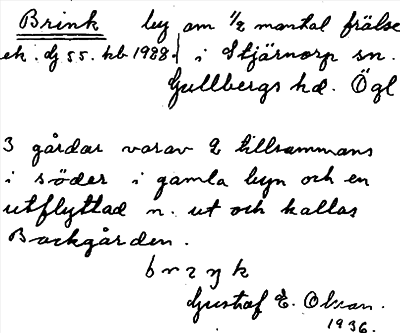 Brink by om 1/2 mantal frälse
ek. dj 55. hb 1988. i Stjärnorp sn.
Gullbergs hd. Ögl
3 gårdar varav 2 tillsammans
i söder i gamla byn och en
utflyttad n. ut och kallas
Backgården.
Gustaf E. Olsson.
1936.